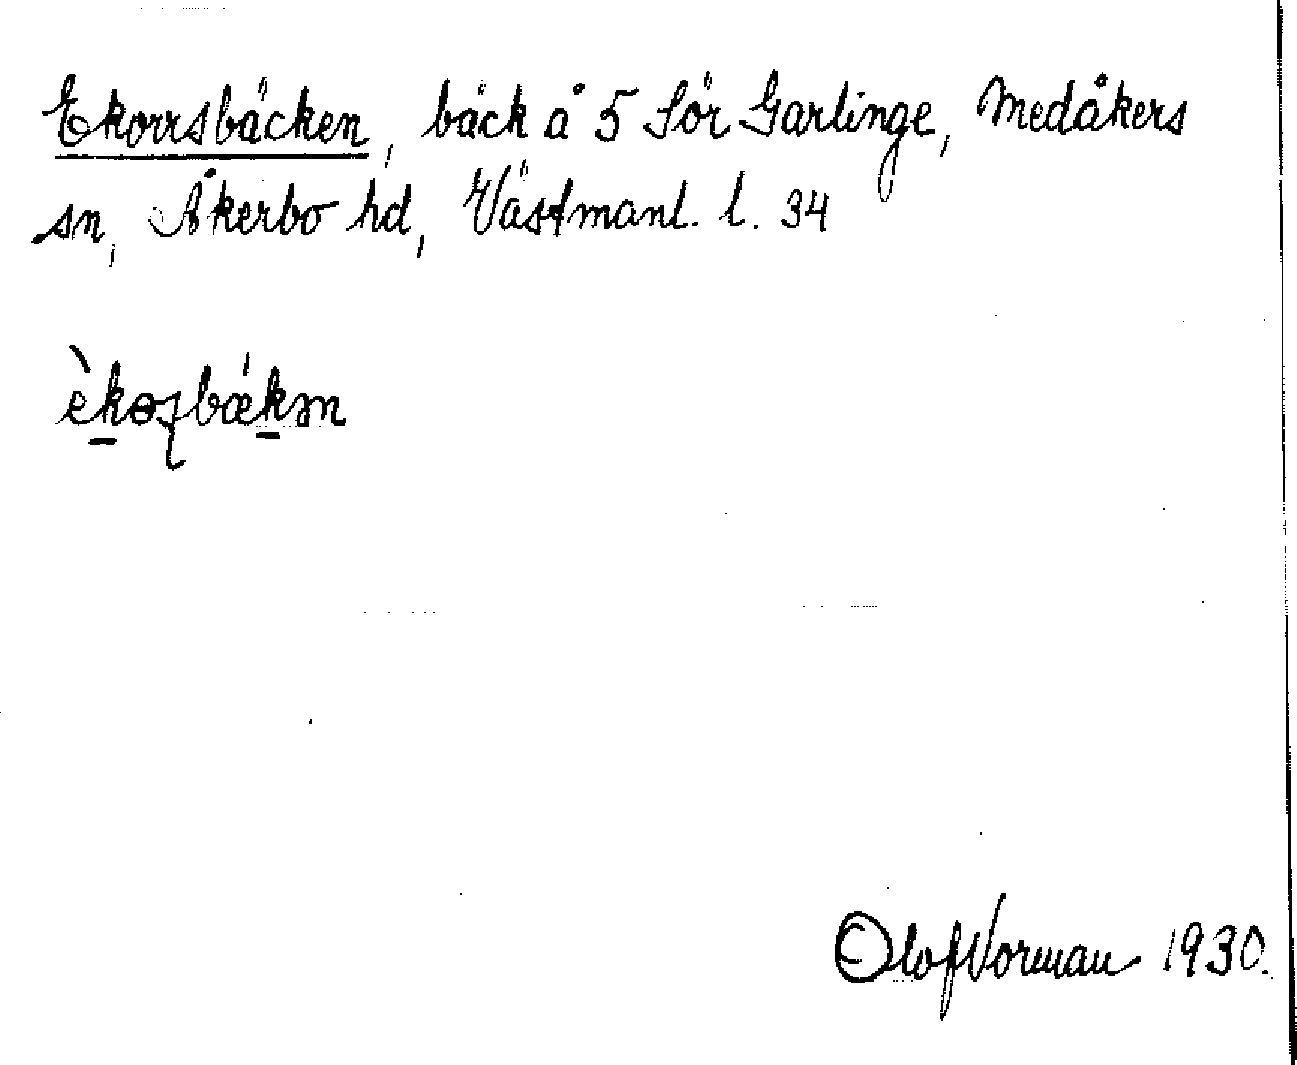 Ekorrsbäcken, bäck å 5 Sör Garlinge, Medåkers
sn, Åkerbo hd, Västmanl. l. 34
Olof Norman 1930.